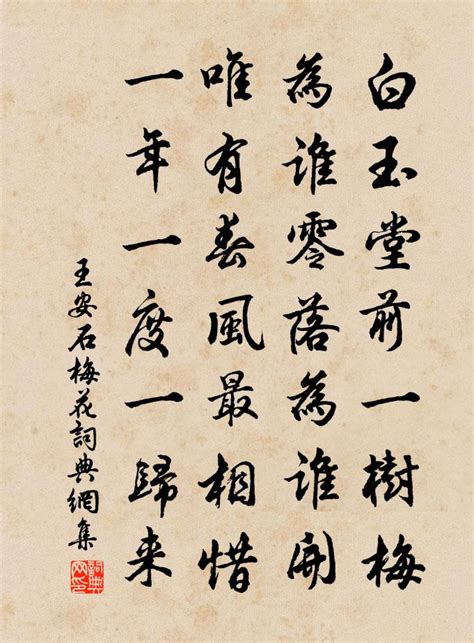 白玉堂前一樹梅
為誰零落為誰開
唯有春風最相惜
一年一度一歸来
王安石梅花詞典網集